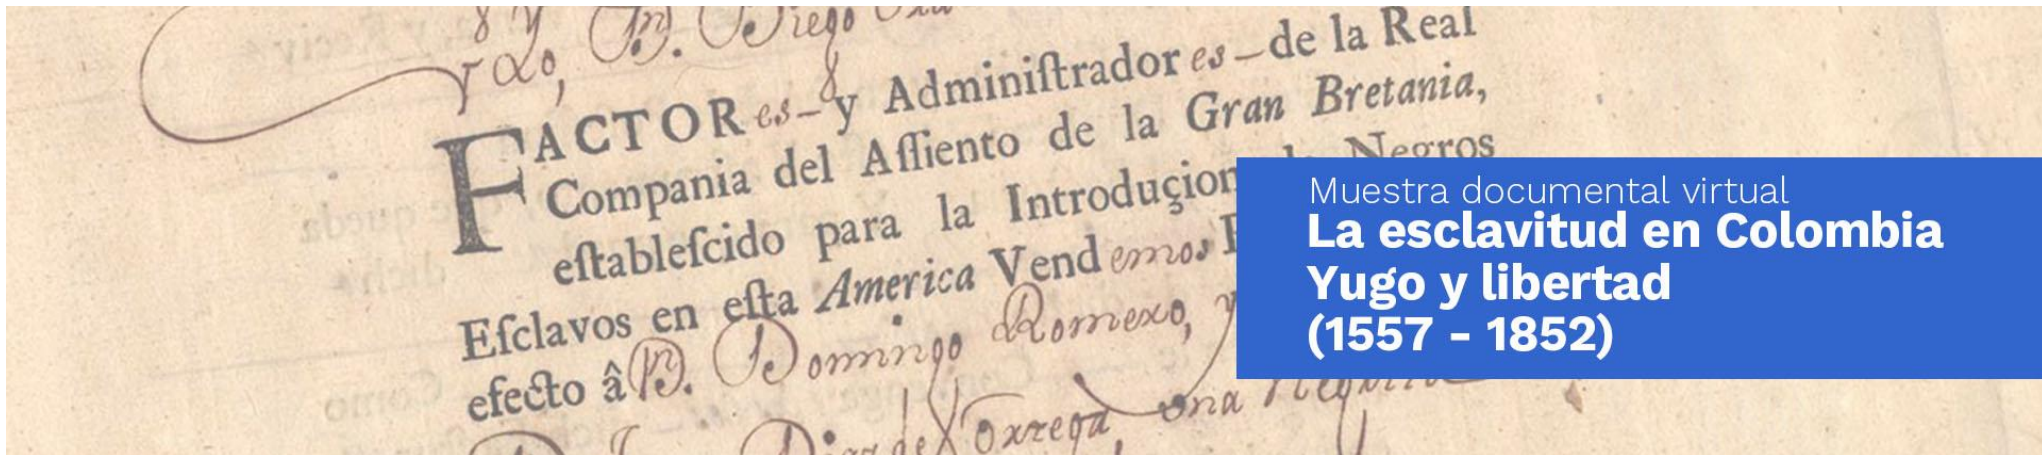 y Yo, Dn. Diego
FACTORes - y Adminiſtradores - de la Real
Compania del Aſſiento de la Gran Bretania,
eſtableſcido para la Introduçion de Negros
Eſclavos en eſta America Vendemos
efecto â Dn. Domingo Romexo, y
Diaz de Oxrega, una Negrita
Muestra documental virtual
La esclavitud en Colombia
Yugo y libertad
(1557 - 1852)